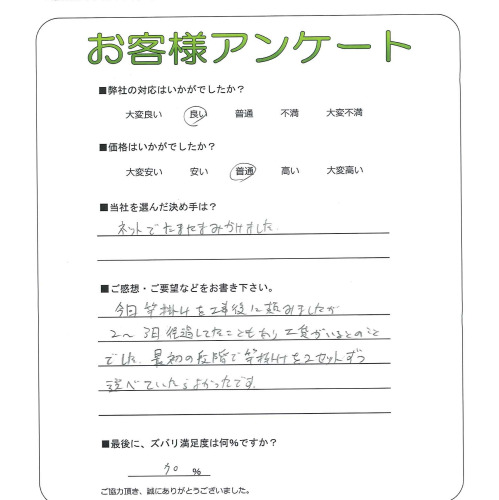 お客様アンケート
■弊社の対応はいかがでしたか?
大変良い 良い 普通 不満 大変不満
■価格はいかがでしたか?
大変安い 安い 普通 高い 大変高い
■当社を選んだ決め手は?
ネットでたまたまみかけました。
■ご感想・ご要望などをお書き下さい。
今回 竿掛けを工事後に頼みましたが
2〜3日経過してたこともあり 工賃がいるとのこと
でした。最初の段階で竿掛けを2セットずつ
選べていたらよかったです。
■最後に、ズバリ満足度は何%ですか?
%
ご協力頂き、誠にありがとうございました。